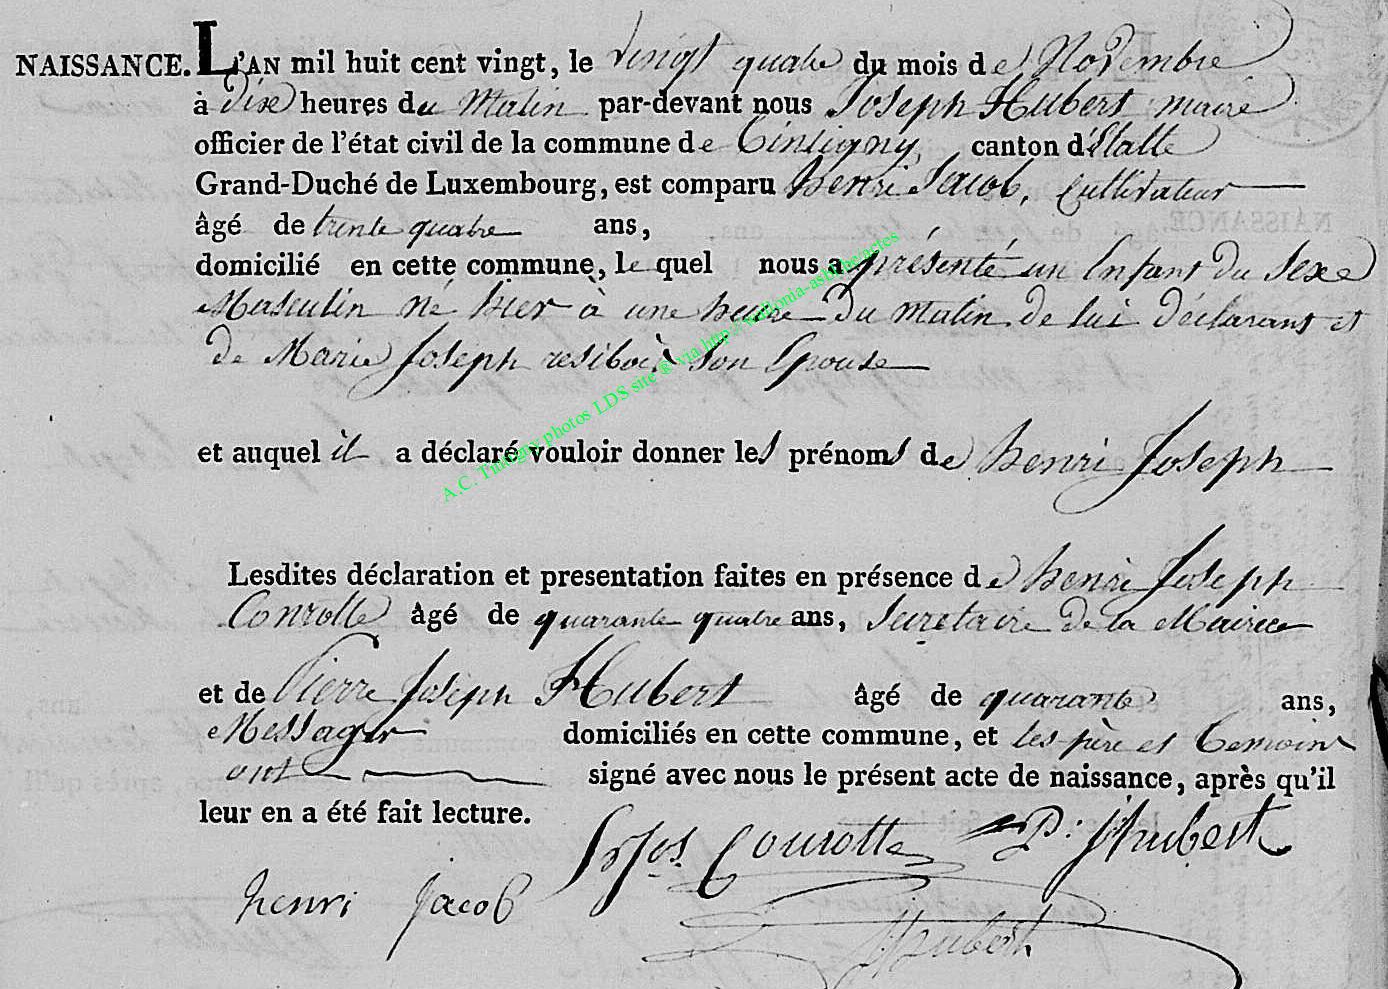 NAISSANCE. L'AN mil huit cent vingt, le vingt quatre du mois de Novembre
à dix heures du Matin par-devant nous Joseph Hubert maire
officier de l'état civil de la commune de Tintigny, canton d'Etalle
Grand-Duché de Luxembourg, est comparu henri Jacob, Cultivateur
âgé de trente quatre ans,
domicilié en cette commune, le quel nous a présenté un Enfant du Sexe
Masculin né hier à une heure du matin de lui déclarant et
de Marie Joseph resibois son Epouse
et auquel il a déclaré vouloir donner les prénoms de henri Joseph
A.C. Tintigny photos LDS site ® via http://wallonia-asbl.be/actes
Lesdites déclaration et presentation faites en présence de henri Joseph
Conrotte âgé de quarante quatre ans, Secretaire de la Mairie
et de Pierre Joseph Hubert âgé de quarante ans,
Messager domiciliés en cette commune, et les père et temoins
ont signé avec nous le présent acte de naissance, après qu'il
leur en a été fait lecture.
Conrotte P: J hubert
henri jacob
Hubert